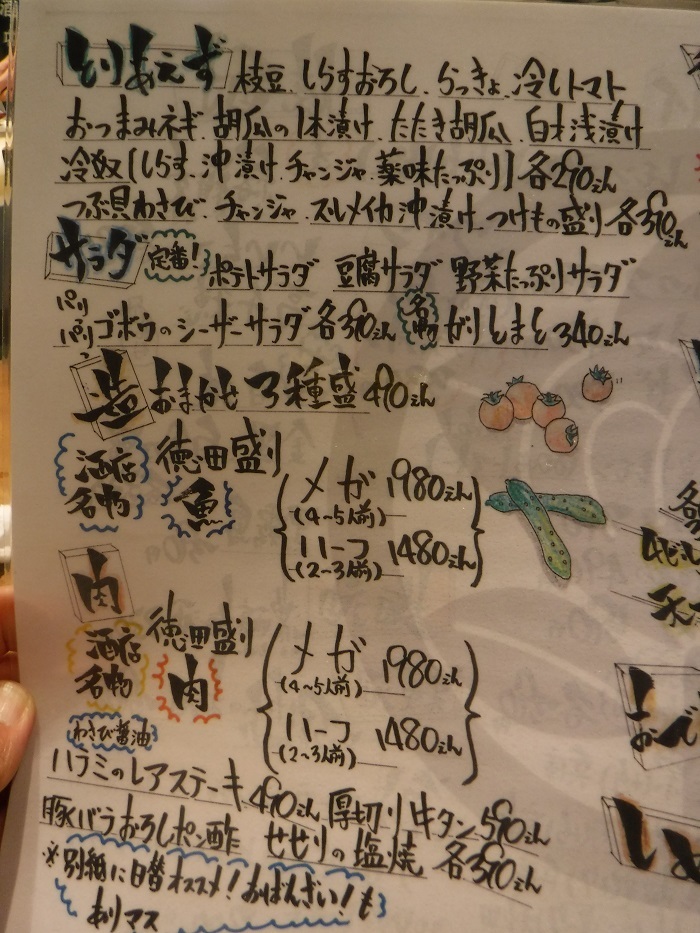 とりあえず 枝豆、しらすおろし、らっきょ、冷しトマト
おつまみネギ、胡瓜の1本漬け、たたき胡瓜、白才浅漬け
冷奴[しらす、沖漬け、チャンジャ、薬味たっぷり]各290えん
つぶ貝わさび、チャンジャ、スルメイカ沖漬け、つけもの盛り各390えん
サラダ 定番! ポテトサラダ 豆腐サラダ 野菜たっぷりサラダ
パリパリゴボウのシーザーサラダ各390えん 名物 がりとまと340えん
造 おまかせ3種盛490えん
酒店名物 徳田盛り 魚
メガ 1980えん
(4~5人前)
ハーフ 1480えん
(2~3人前)
肉
酒店名物 徳田盛り 肉
メガ 1980えん
(4~5人前)
ハーフ 1480えん
(2~3人前)
わさび醤油
ハラミのレアステーキ490えん 厚切り牛タン590えん
豚バラおろしポン酢 せせりの塩焼 各390えん
※別紙に日替オススメ!おばんざい!も
ありマス